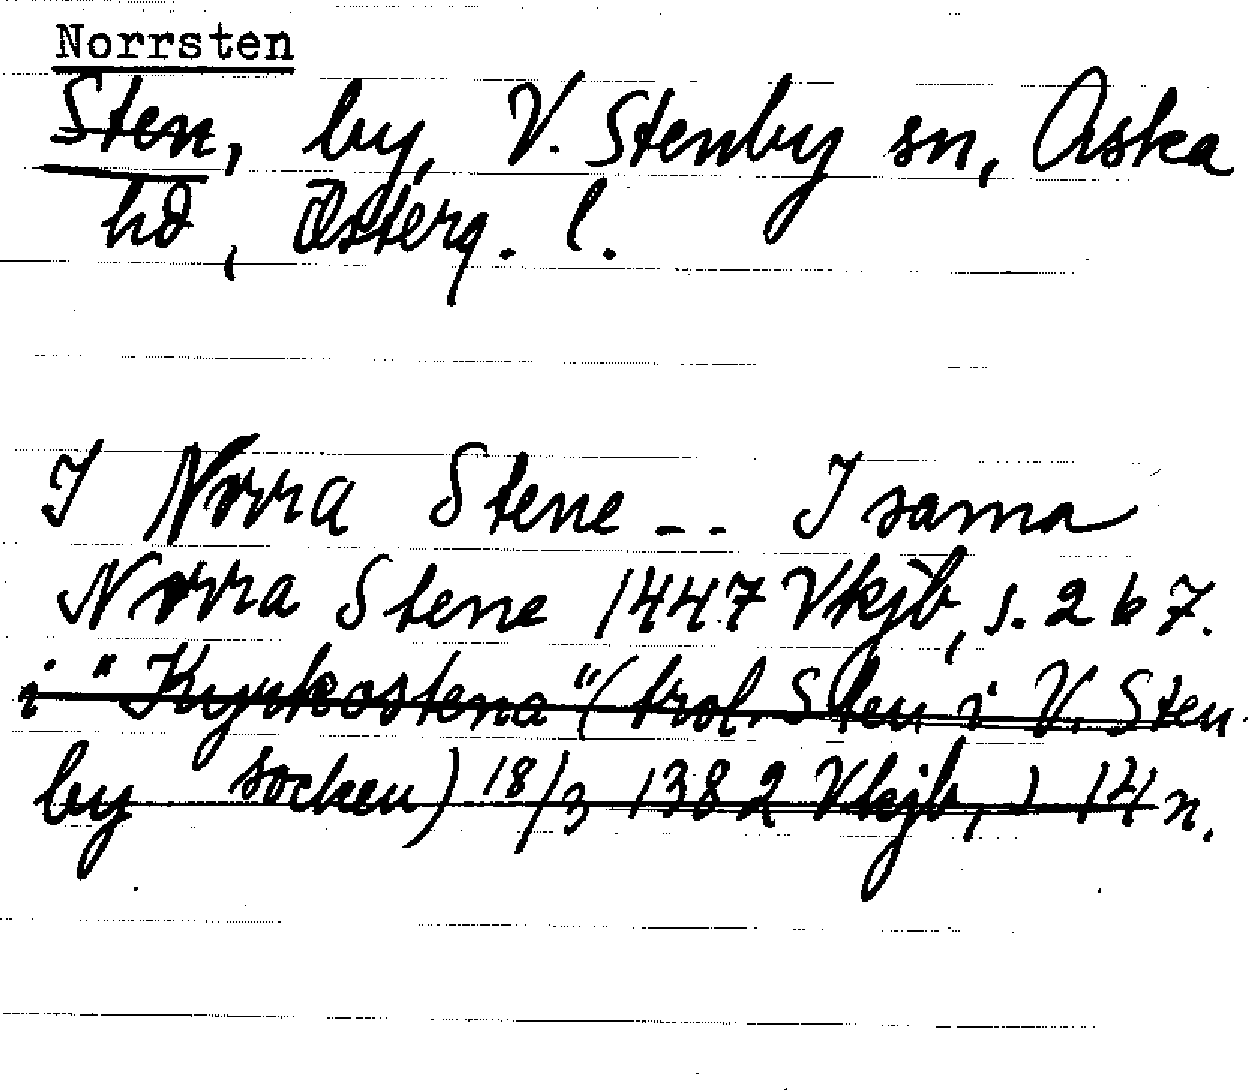 Norrsten
Sten, by, V. Stenby sn, Aska
hd, Österg. l.
I Norra Stene -- I sama
Norra Stene 1447 Vkjb, s. 267.
i "Kyrkostena" (trol. Sten i V. Sten-
by socken) 18/3 1382 Vkjb, s 14 n.